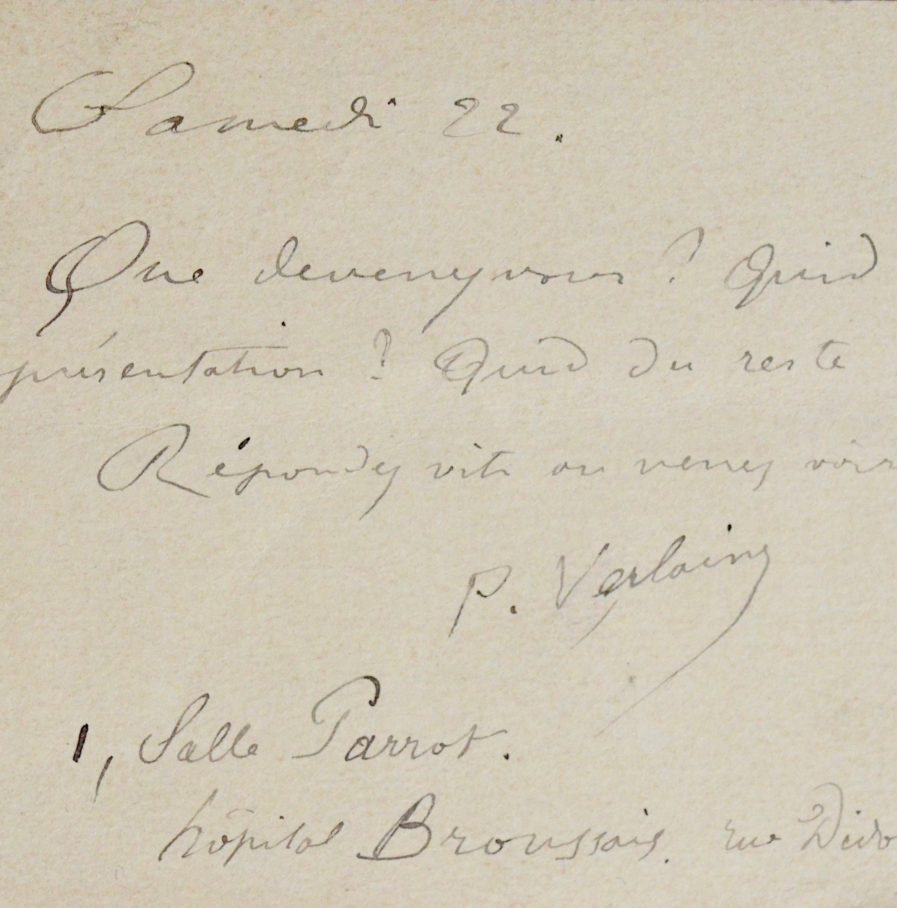 Samedi 22.
Que devenez vous ? Quid
présentation ? Quid du reste
Répondez vite ou venez voir
P. Verlaine
1, Salle Parrot.
hôpital Broussais. rue Dido